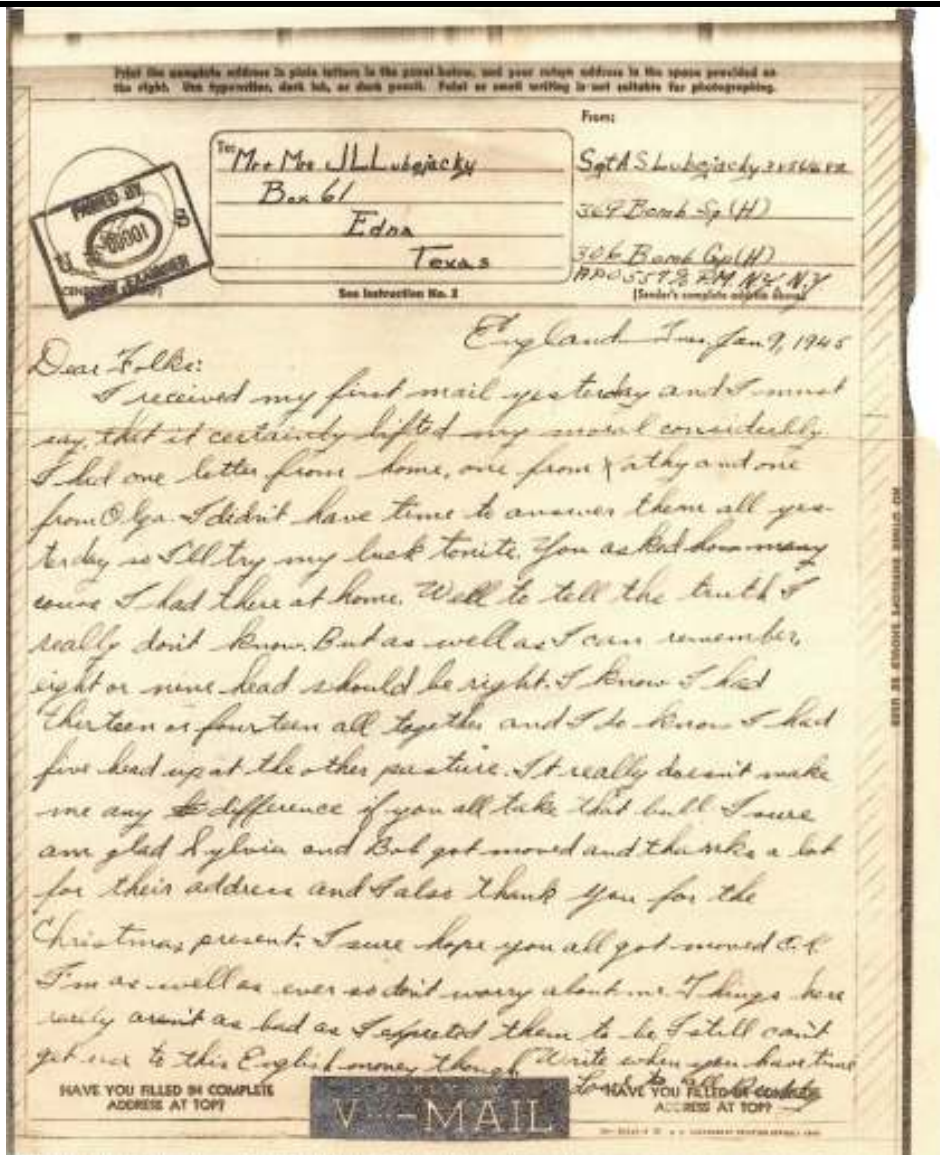 Print the complete address in plain letters in the panel below, and your return address in the space provided on
the right. Use typewriter, dark ink, or dark pencil. Faint or small writing is not suitable for photographing.
From:
To: Mr & Mrs J L Lubojacky
Box 61
Edna
Texas
Sgt A S Lubojacky
369 Bomb Sq (H)
306 Bomb Gp (H)
APO 557 % P.M. N.Y. N.Y
PASSED BY
U S
00001
EXAMINER
See Instruction No. 2
(Sender's complete address above)
England Tues. Jan 9, 1945
Dear Folks:
I received my first mail yesterday and I must
say, that it certainly lifted my moral considerbly.
I had one letter from home, one from Kathy and one
from Olga. I didn't have time to answer them all yes-
terday so I'll try my luck tonite. You asked how many
cows I had there at home. Well to tell the truth I
really don't know. But as well as I can remember,
eight or nine head should be right. I know I had
thirteen or fourteen all together and I do know I had
five head up at the other pasture. It really doesn't make
me any difference if you all take that bull. I sure
am glad Sylvia and Bob got moved and thanks a lot
for their address and I also thank you for the
Christmas present. I sure hope you all got moved O.K.
I'm as well as ever so don't worry about me. Things here
aren't as bad as I expected them to be. I still can't
get use to this English money though. Write when you have time
HAVE YOU FILLED IN COMPLETE
ADDRESS AT TOP?
V-MAIL
HAVE YOU FILLED IN COMPLETE
ADDRESS AT TOP?